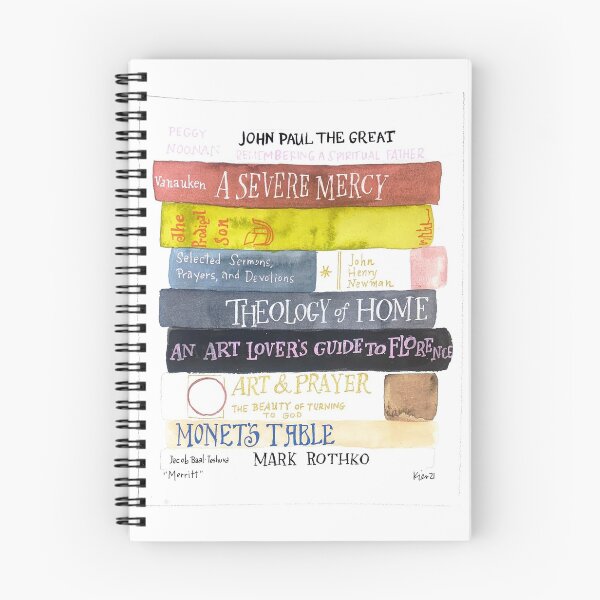 PEGGY
NOONAN
JOHN PAUL THE GREAT
REMEMBERING A SPIRITUAL FATHER
Vanauken A SEVERE MERCY
The
Prodigal
Son
Selected Sermons,
Prayers, and Devotions
John
Henry
Newman
THEOLOGY of HOME
AN ART LOVER'S GUIDE TO FLORENCE
ART & PRAYER
THE BEAUTY OF TURNING
TO GOD
MONET'S TABLE
Jacob Baal-Teshuva
MARK ROTHKO
"Merritt"